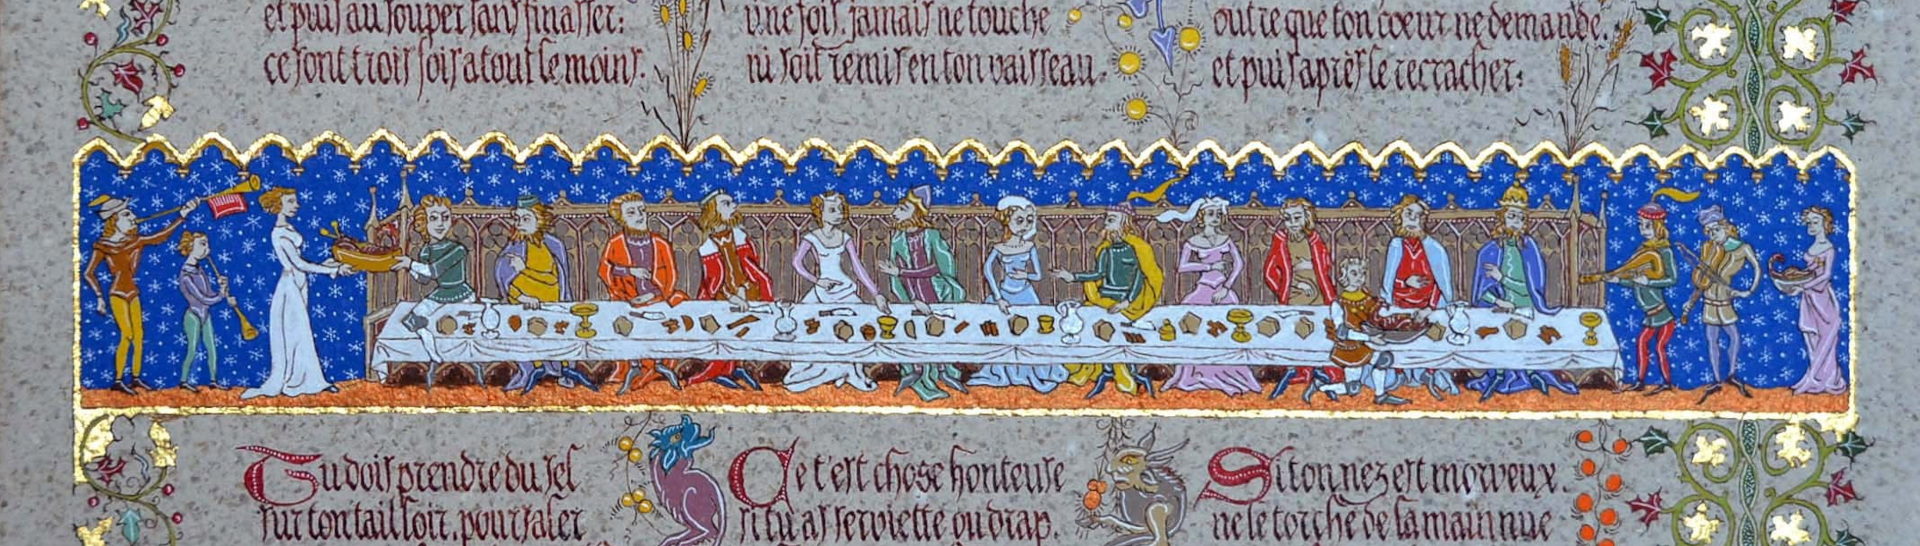 et puis au souper sans finasser:
ce sont trois fois a tout le moins.
une fois, jamais ne touche
ni soit remis en ton vaisseau.
outre que ton coeur ne demande.
et puis après le recracher:
Tu dois prendre du sel
sur ton tailloir, pour saler
Ce t'est chose honteuse
si tu as serviette ou drap.
Si ton nez est morveux.
ne le torche de la main nue